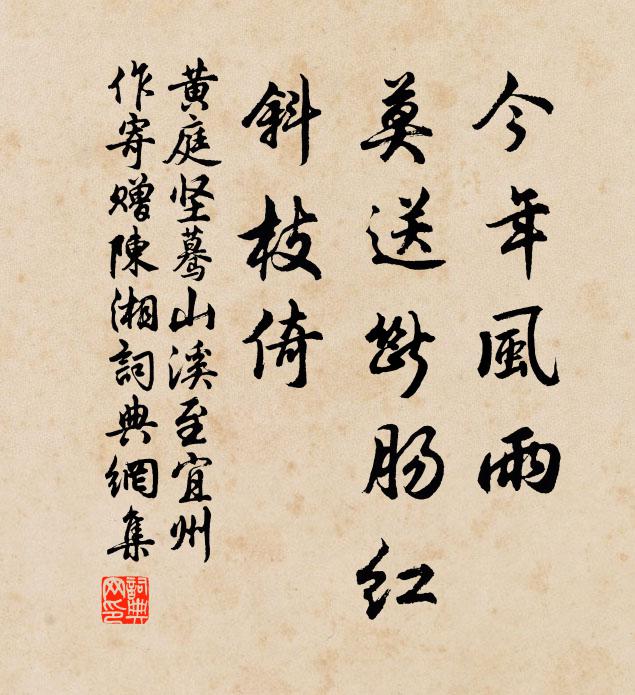 今年風雨
莫送断肠红
斜枝倚
黄庭坚驀山溪至宜州
作寄赠陳湘詞典網集
詞典网印